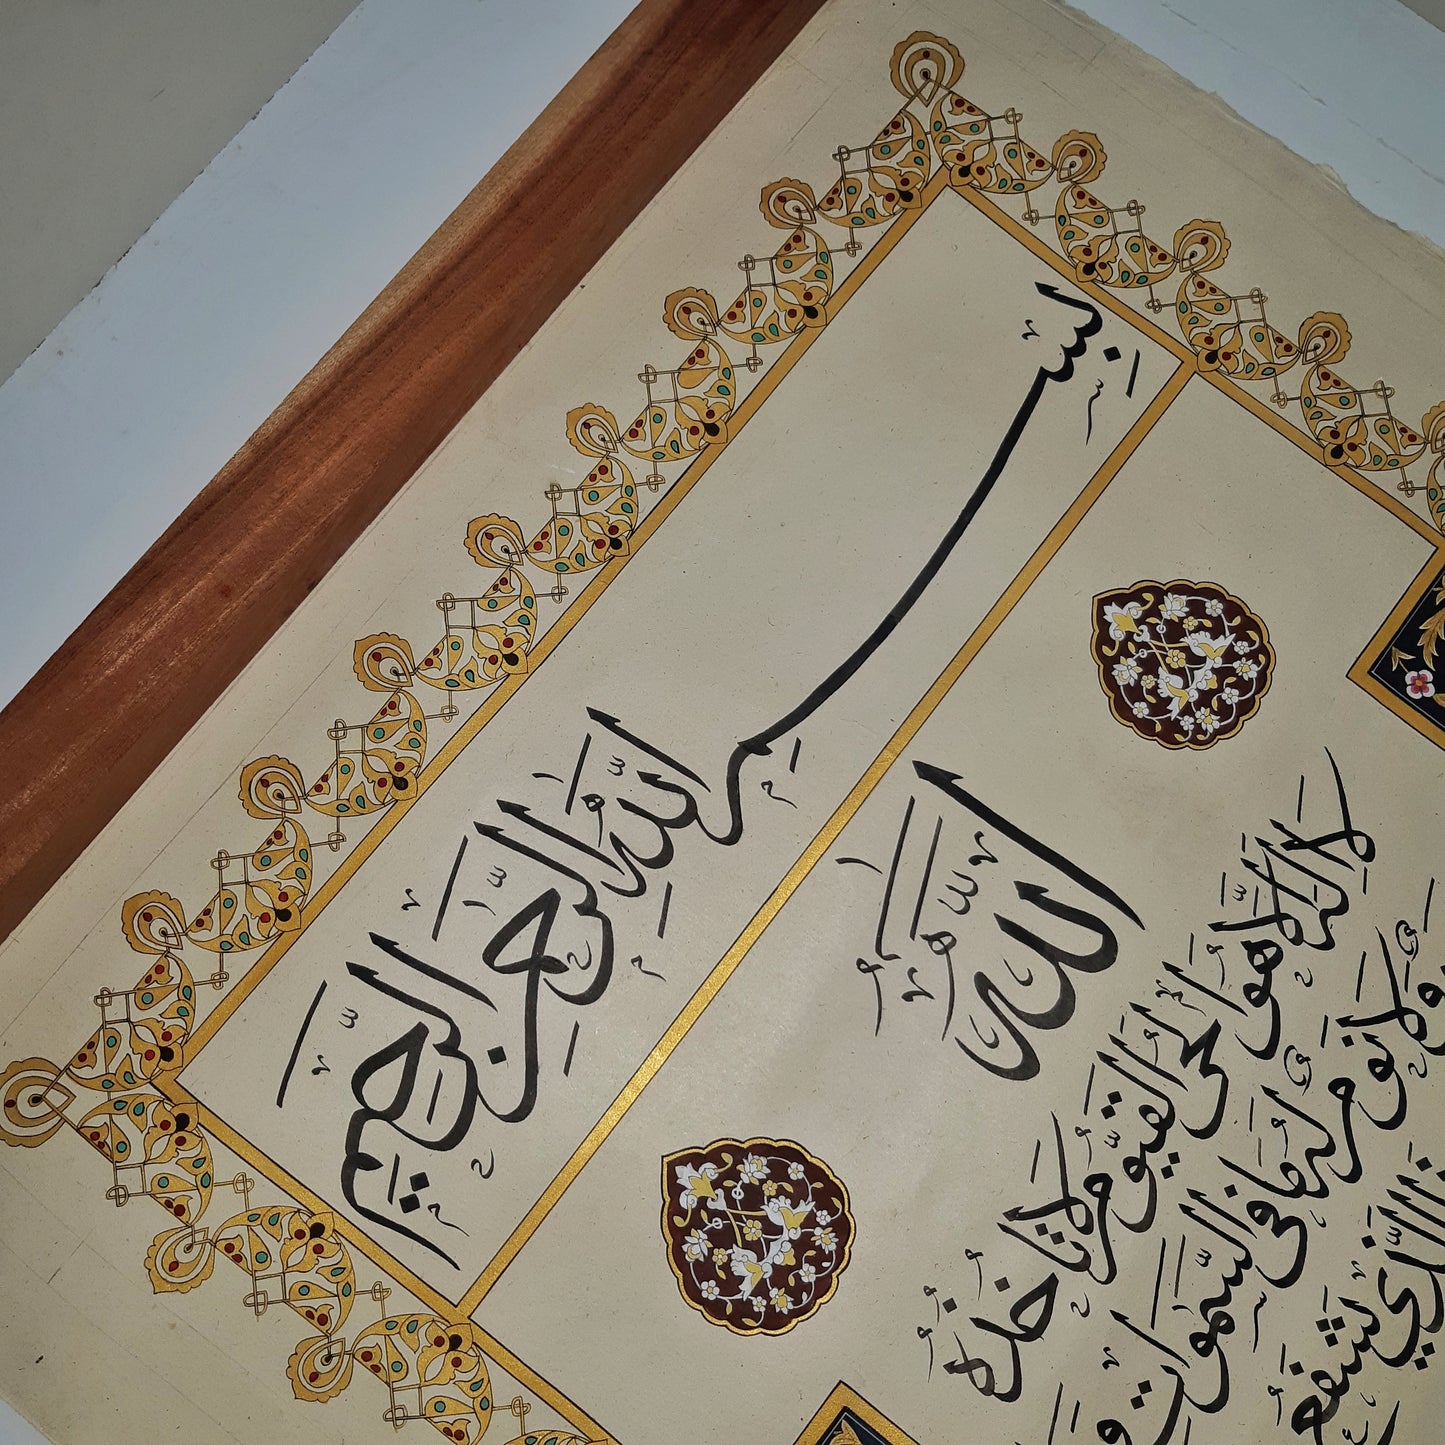 بِسْمِ اللَّهِ الرَّحْمَنِ الرَّحِيمِ
اللَّهُ
لَا إِلَهَ إِلَّا هُوَ الْحَيُّ الْقَيُّومُ لَا تَأْخُذُهُ
وَلَا نَوْمٌ لَهُ مَا فِي السَّمَوَاتِ وَ
الَّذِي يَشْفَعُ